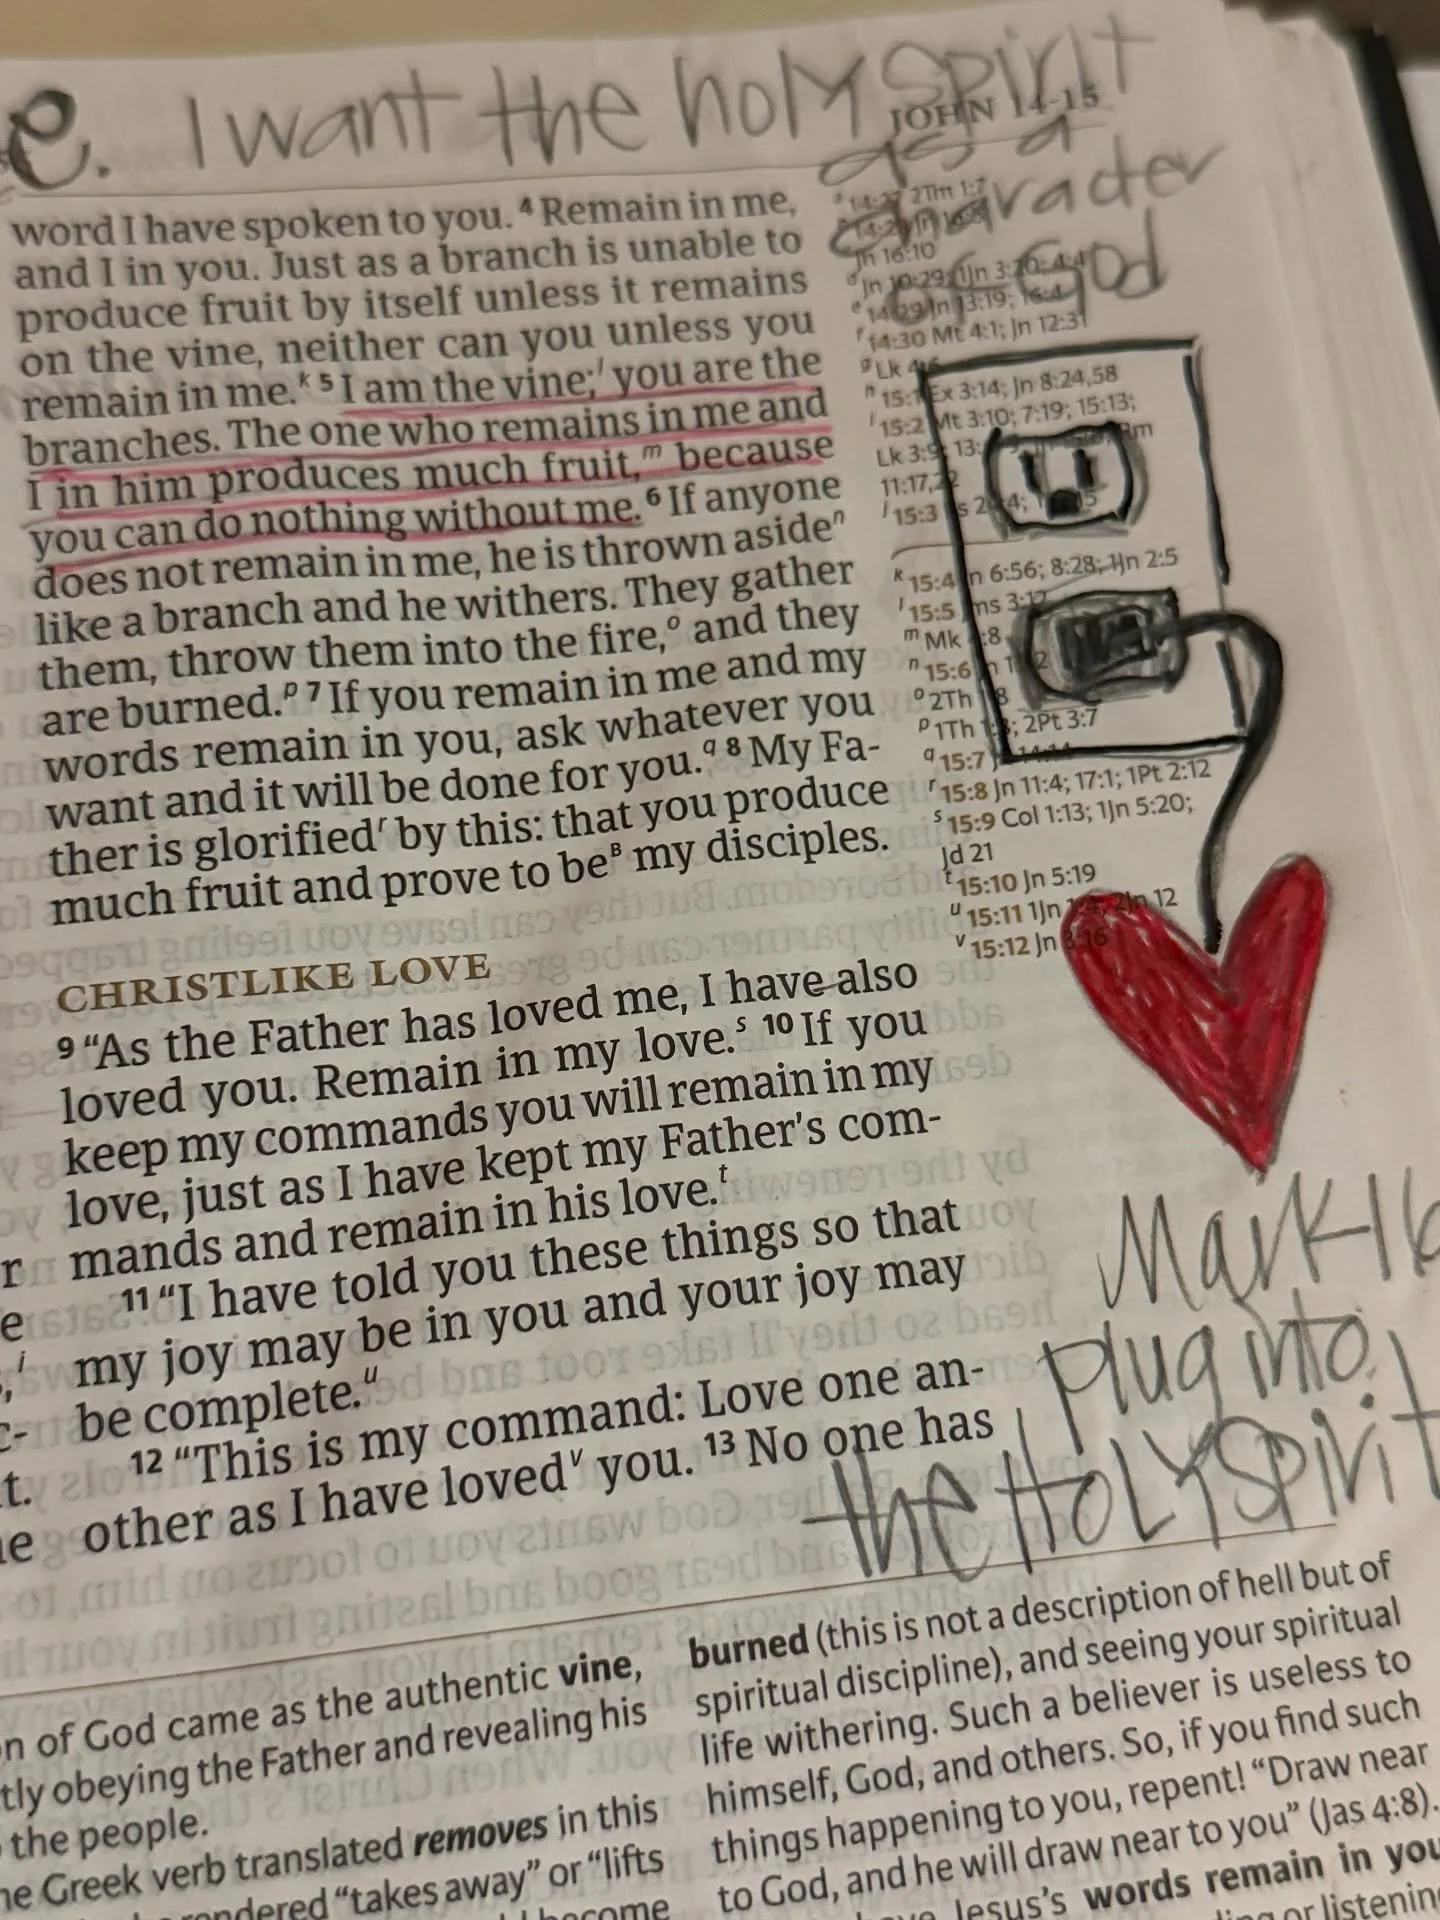 e. I want the holy spirit
JOHN 14-15
as a
of God
word I have spoken to you. 4 Remain in me,
and I in you. Just as a branch is unable to
produce fruit by itself unless it remains
on the vine, neither can you unless you
remain in me.k 5 I am the vine;l you are the
branches. The one who remains in me and
I in him produces much fruit,m because
you can do nothing without me. 6 If anyone
does not remain in me, he is thrown asiden
like a branch and he withers. They gather
them, throw them into the fire,o and they
are burned.p 7 If you remain in me and my
words remain in you, ask whatever you
want and it will be done for you.q 8 My Fa-
ther is glorifiedr by this: that you produce
much fruit and prove to beB my disciples.
CHRISTLIKE LOVE
9 “As the Father has loved me, I have also
loved you. Remain in my love.s 10 If you
keep my commands you will remain in my
love, just as I have kept my Father's com-
mands and remain in his love.t
11 “I have told you these things so that
my joy may be in you and your joy may
be complete.u
12 “This is my command: Love one an-
other as I have lovedv you. 13 No one has
14:27 2Tm 1:7
Jn 16:10
Jn 10:29; 1Jn 3:20; 4:4
14:29 Jn 13:19; 16:4
f 14:30 Mt 4:1; Jn 12:31
g Lk
h 15:1 Ex 3:14; Jn 8:24,58
i 15:2 Mt 3:10; 7:19; 15:13;
Lk 3:9; 13:
11:17,22
j 15:3
k 15:4 Jn 6:56; 8:28; 1Jn 2:5
l 15:5
m Mk
n 15:6
o 2Th
p 1Th 2Pt 3:7
q 15:7
r 15:8 Jn 11:4; 17:1; 1Pt 2:12
s 15:9 Col 1:13; 1Jn 5:20;
Jd 21
t 15:10 Jn 5:19
u 15:11 1Jn 1:4; 2Jn 12
v 15:12 Jn 3:16
Mark 16
plug into
the Holy Spirit
n of God came as the authentic vine,
tly obeying the Father and revealing his
the people.
he Greek verb translated removes in this
rendered “takes away” or “lifts
become
burned (this is not a description of hell but of
spiritual discipline), and seeing your spiritual
life withering. Such a believer is useless to
himself, God, and others. So, if you find such
things happening to you, repent! “Draw near
to God, and he will draw near to you” (Jas 4:8).
Jesus's words remain in you
or listening